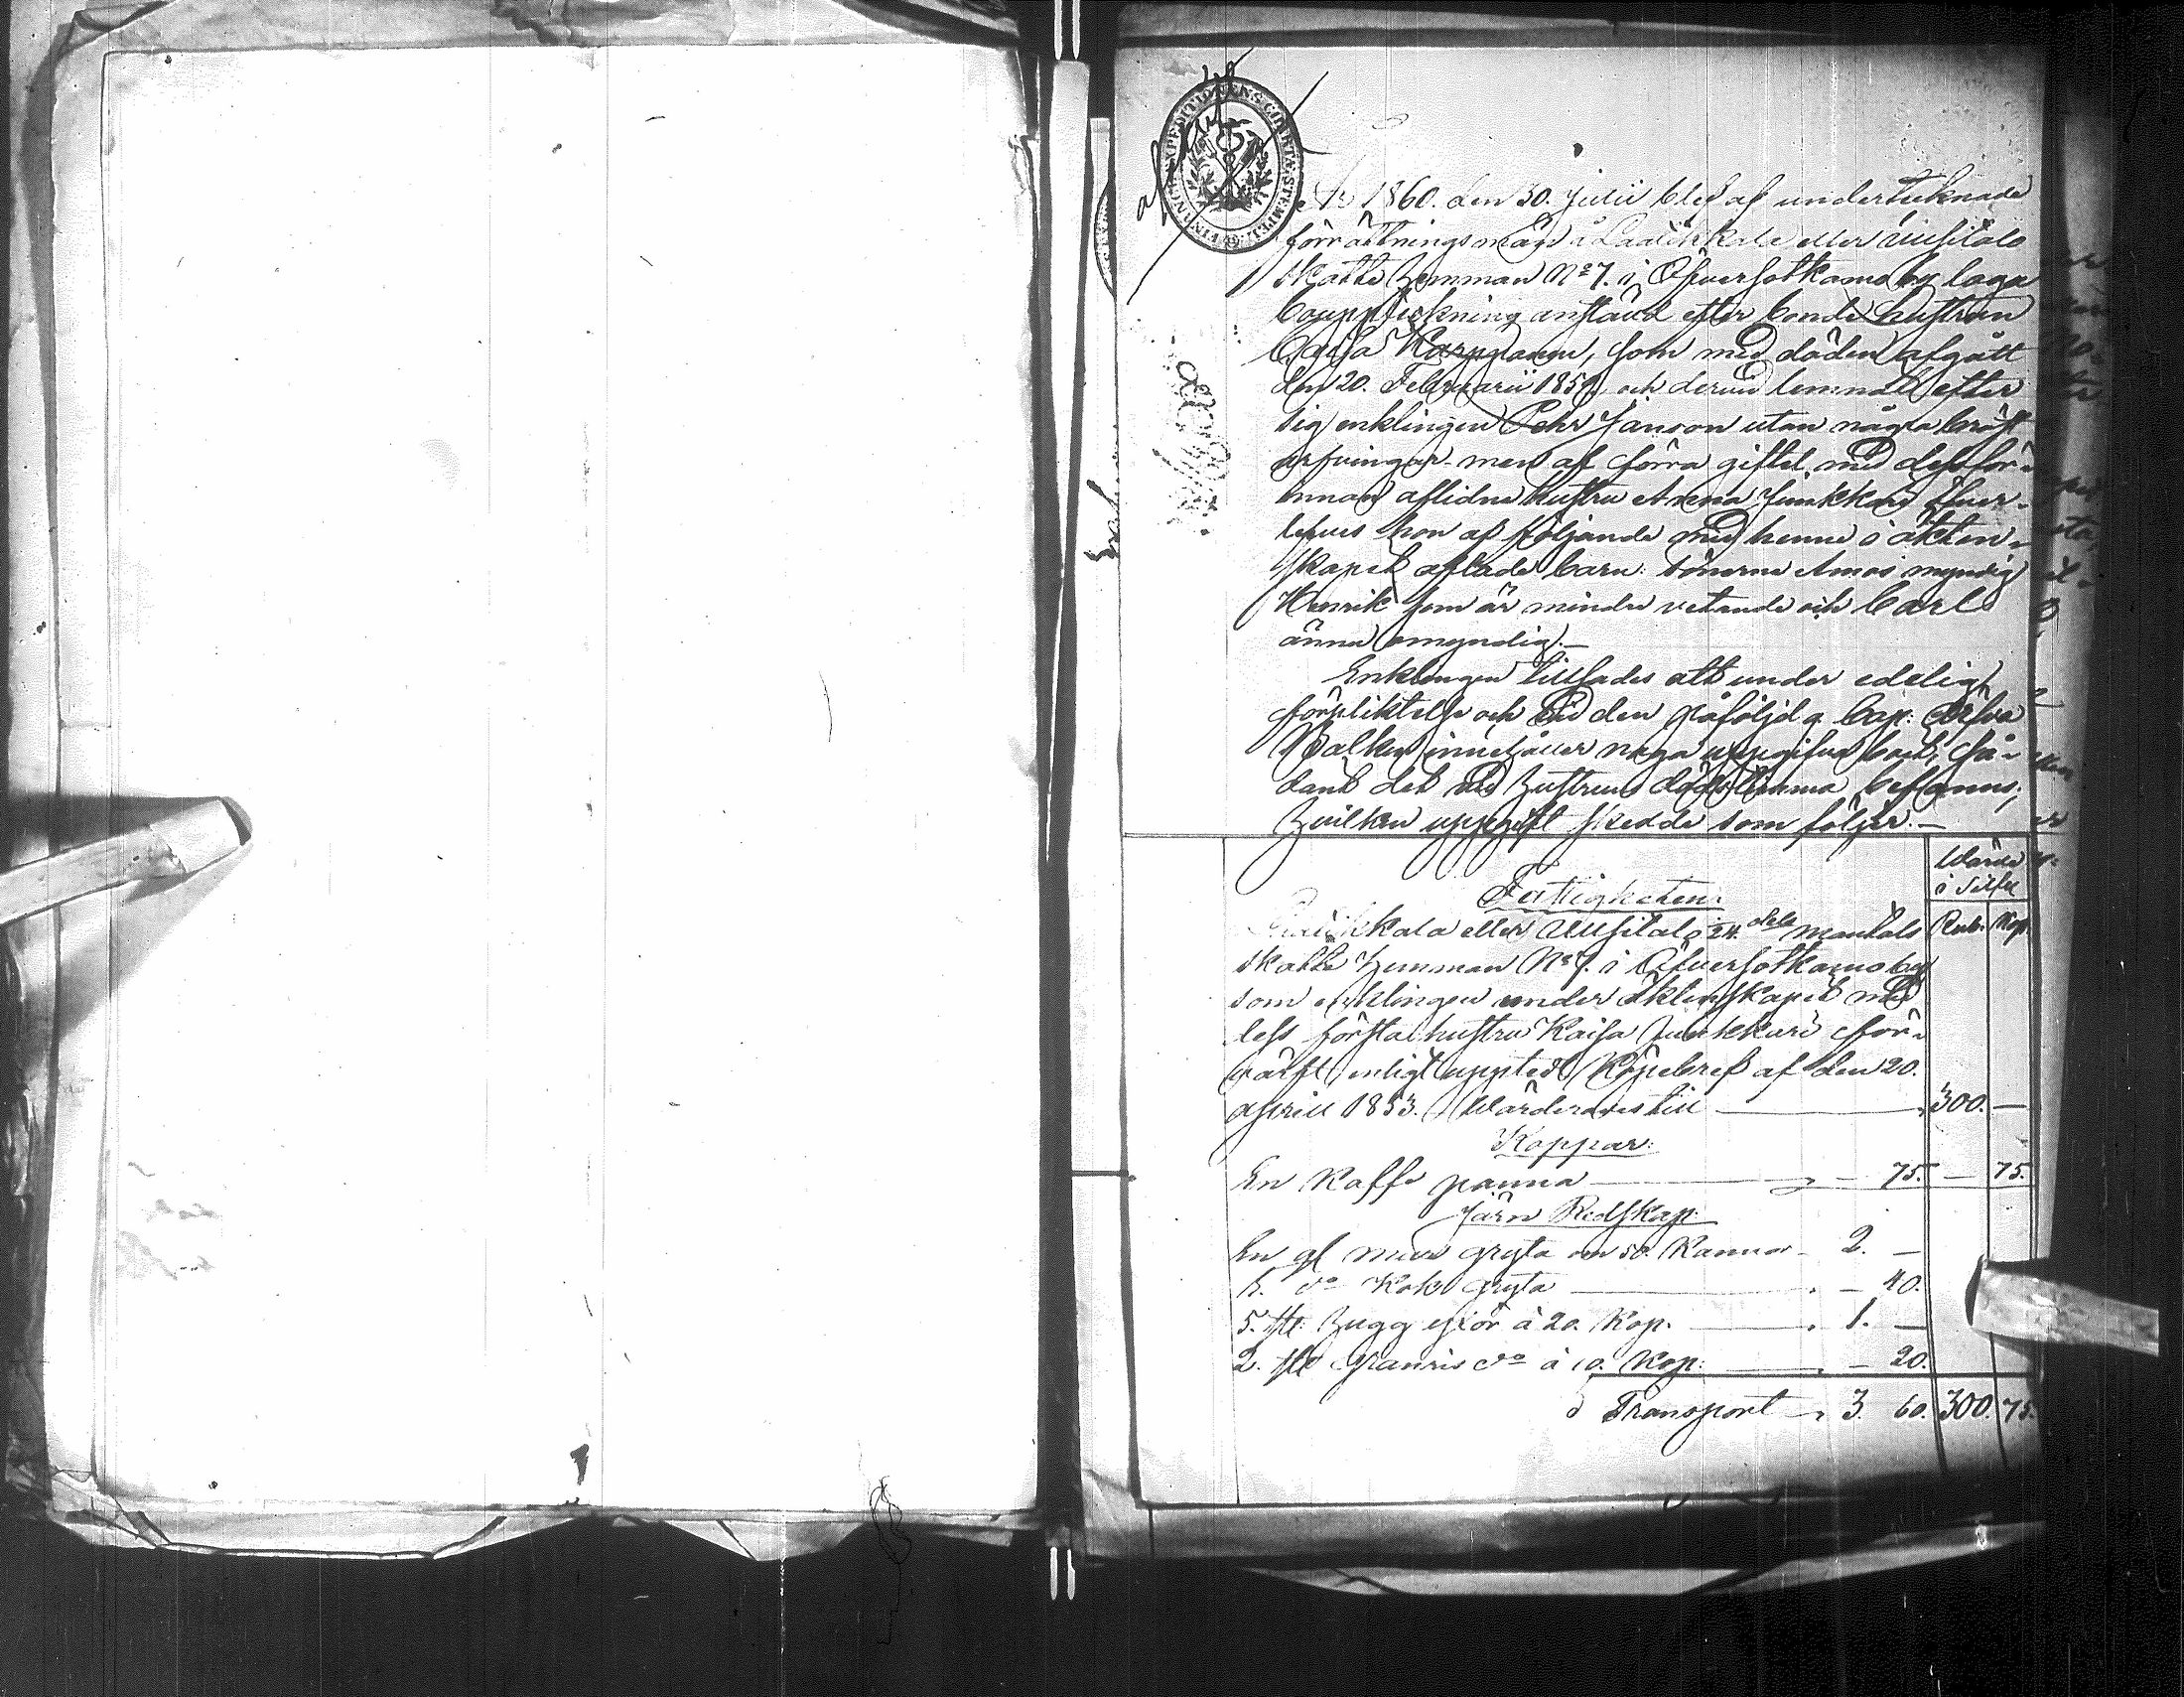 FINANCE EXPEDITIONENS CHARTÆ STEMPEL
År 1860. den 30. Julii blef af undertecknade
förrättningsmän å Laddikkala eller Uusitalo
skatte Hemman No 7. i Öfversotkamo by laga
bouppteckning anstäld efter bonde hustrun
Caisa Karppanen, som med döden afgått
den 20. Februarii 185 och dervid lemnat efter
sig enklingen Pehr Janson utan några bröst
arfvingar men af förra giftet med dess för-
innan aflidne hustru Anna Junkkari öfver-
lefves hon af följande med henne i äkten-
skapet aflade barn: sönerne Amos myndig
Henrik som är mindre vetande och Carl
ännu omyndig.—
Enklingen tillsades att under edeligt
förpliktelse och vid den påföljd 9 Cap: Ärfda
Balken innehåller noga uppgifva boet, så-
dant det vid Hustruns dödstimma befanns,
Hvilken uppgift skedde som följer.—
Wärde
i Silfver
Rub. Kop.
Fastigheten:
kala eller Uusitalo 24 dels mantals
skatte Hemman No 7. i Öfversotkamo by
som enklingen under äktenskapet med
dess första hustru Kaisa Junkkari för-
värft, enligt uppted Köpebref af den 20.
April 1853. Wärderades till — 300. —
Koppar:
En Kaffe panna — 75. — 75.
Järn Redskap:
En gl mur gryta om 50. Kannor — 2. —
1. do Kok gryta — 40.
5. st. Hugg yxor à 20. Kop. — 1. —
2. st. do à 10. Kop: — 20.
Transport — 3. 60. 300. 75.